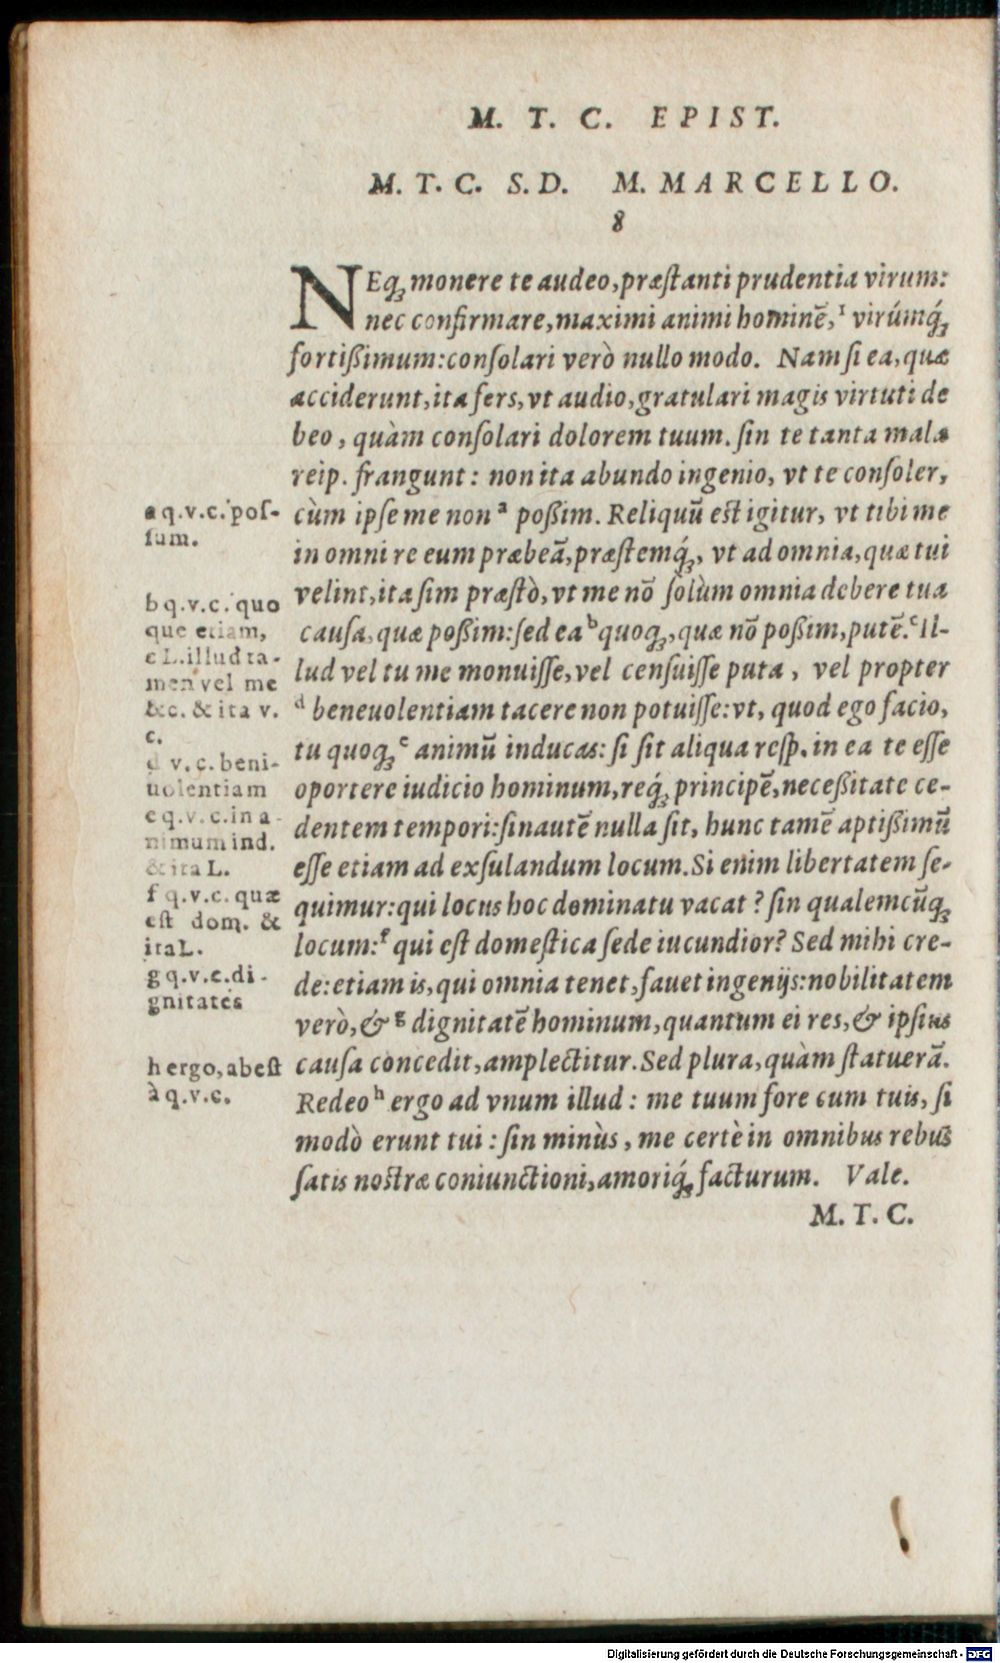 M. T. C. EPIST.
M. T. C. S. D. M. MARCELLO.
8
NEq́ꝫ monere te audeo, præſtanti prudentia virum:
nec confirmare, maximi animi hominē,¹ virúmq́ꝫ
fortiſſimum: conſolari verò nullo modo. Nam ſi ea, quæ
acciderunt, ita fers, vt audio, gratulari magis virtuti de
beo, quàm conſolari dolorem tuum. ſin te tanta mala
reip. frangunt: non ita abundo ingenio, vt te conſoler,
cùm ipſe me non ᵃ poſſim. Reliquū eſt igitur, vt tibi me
in omni re eum præbeā, præſtemq́ꝫ, vt ad omnia, quæ tui
velint, ita ſim præſtò, vt me nō ſolùm omnia debere tua
cauſa, quæ poſſim: ſed ea ᵇ quoqꝫ, quæ nō poſſim, putē. ᶜ Il-
lud vel tu me monuiſſe, vel cenſuiſſe puta, vel propter
ᵈ beneuolentiam tacere non potuiſſe: vt, quod ego facio,
tu quoqꝫ ᵉ animū inducas: ſi ſit aliqua reſp. in ea te eſſe
oportere iudicio hominum, req́ꝫ principē, neceſſitate ce-
dentem tempori: ſin autē nulla ſit, hunc tamē aptiſſimū
eſſe etiam ad exſulandum locum. Si enim libertatem ſe-
quimur: qui locus hoc dominatu vacat? ſin qualemcūqꝫ
locum: ᶠ qui eſt domeſtica ſede iucundior? Sed mihi cre-
de: etiam is, qui omnia tenet, fauet ingenijs: nobilitatem
verò, & ᵍ dignitatē hominum, quantum ei res, & ipſius
cauſa concedit, amplectitur. Sed plura, quàm ſtatuerā.
Redeo ʰ ergo ad vnum illud: me tuum fore cum tuis, ſi
modò erunt tui: ſin minùs, me certè in omnibus rebus
ſatis noſtræ coniunctioni, amoriq́ꝫ facturum. Vale.
M. T. C.
a q.v.c. poſ-
ſum.
b q.v.c. quo
que etiam,
c L. illud ta-
men vel me
&c. & ita v.
c.
d v.c. beni-
uolentiam
e q.v.c. in a-
nimum ind.
& ita L.
f q.v.c. quæ
eſt dom. &
ita L.
g q.v.c. di-
gnitates
h ergo, abeſt
à q.v.c.
Digitalisierung gefördert durch die Deutsche Forschungsgemeinschaft - DFG